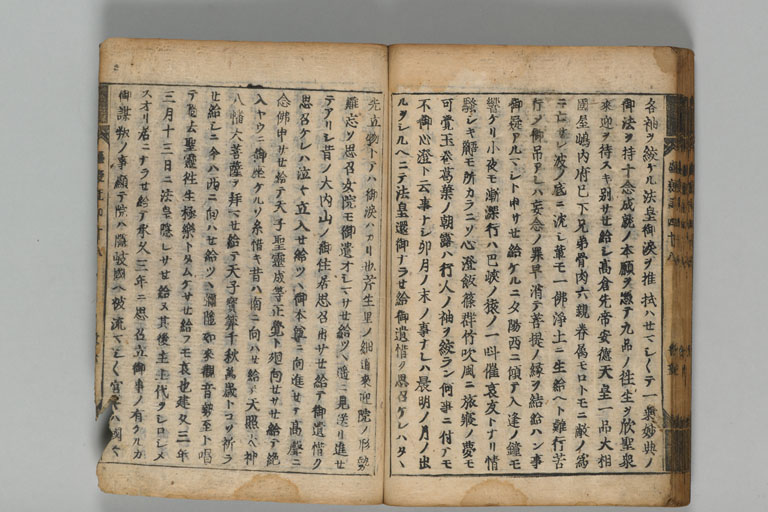 各袖ヲ絞ケル法皇御涙ヲ推拭ハセマシ〳〵テ一乗妙典ノ
御法ヲ持十念成就ノ本願ヲ憑テ九品ノ往生ヲ欣聖衆
来迎ヲ待スキ別サセ給シ高倉先帝安徳天皇一品大相
國屋嶋内府已下兄弟骨肉六親眷属モロトモニ敵ノ為
ニ亡サレ波ノ底ニ沈シ輩モ一佛浄土ニ生給ヘト難行苦
行ノ御吊アレハ妄念ノ罪早消テ菩提ノ縁ヲ結給ハン事
御疑アルマシト申サセ給ケルニ夕陽西ニ傾テ入逢ノ鐘モ
響ケリ小夜モ漸深行ハ巴峡ノ猿ノ一叫催哀友トナリ情
騒シキ解モ所カラニソ心澄飯篠群竹吹風ニ旅寝ノ夢モ
可覚玉巻葛葉ノ朝露ハ行人ノ袖ヲ絞ラン何事ニ付テモ
不御心澄ト云事ナシ卯月ノ末ノ事ナレハ晨明ノ月ノ出
ルヲシルヘニテ法皇還御ナラセ給御遺惜ク思召ケレハタヽ
先立物トテハ御涙ハカリ也芹生里ノ細道来迎院ノ形勢
難忘ソ思召女院モ御遣オシマサセ給ツヽ遙ニ見送リ進セ
テアリシ昔ノ大内山ノ御住居思召出サセ給テ御遺惜ク
思召ケレハ泣々立入セ給ツヽ御本尊ニ向進セテ高声ニ
念佛申サセ給テ天子聖霊成等正覚ト廻向セサセ給テ絶
入ヤウニ御座ケルソ糸惜キ昔ハ南ニ向ハセ給テ天照大神
八幡大菩薩ヲ拝マセ給テ天子寳筭千秋萬歳トコソ祈ラ
セ給シニ今ハ西ニ向ハセ給ツヽ彌陀如来観音勢至ト唱
テ過去聖霊往生極楽トタムケサセ給フモ哀也建久三年
三月十三日ニ法皇隠レサセ給ヌ其後主上代ヲシロシメ
スオリ君ニナラセ給テ承久三年ニ思召立御事ノ有クルカ
御謀叛ノ事顕テ院ハ隠岐國ヘ被流マシ〳〵宮々ハ國々